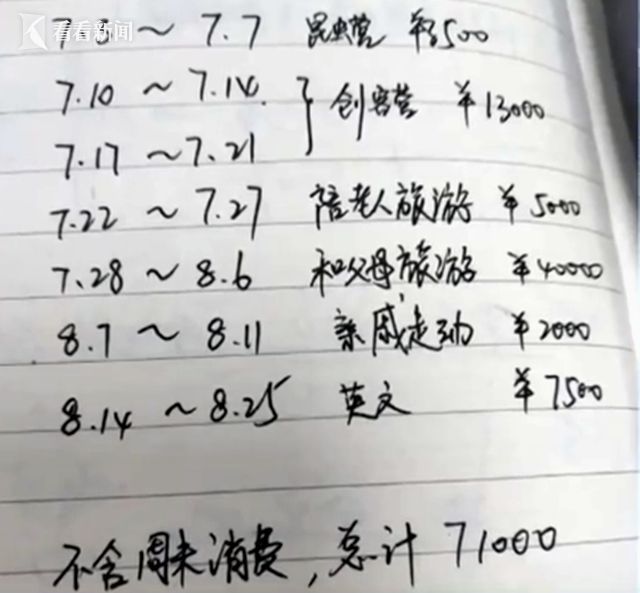 看看新闻
7.3 ~ 7.7 昆虫营 ¥3500
7.10 ~ 7.14
创客营 ¥13000
7.17 ~ 7.21
7.22 ~ 7.27 陪老人旅游 ¥5000
7.28 ~ 8.6 和父母旅游 ¥40000
8.7 ~ 8.11 亲戚走动 ¥2000
8.14 ~ 8.25 英文 ¥7500
不含周末消费，总计 71000